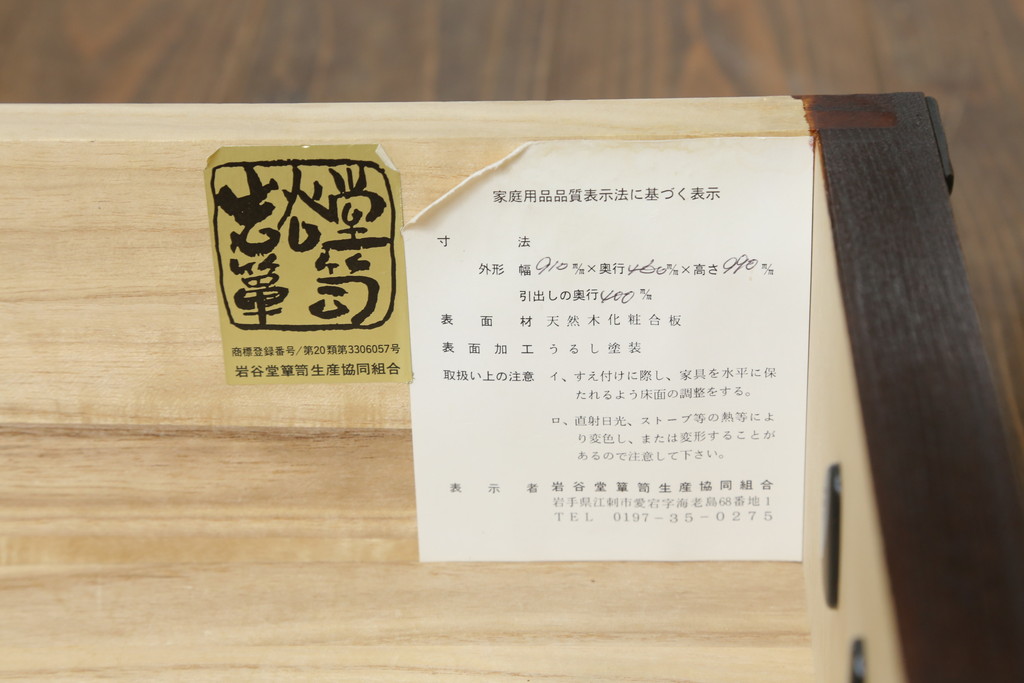 岩谷堂
簞笥
商標登録番号/第20類第3306057号
岩谷堂簞笥生産協同組合
家庭用品品質表示法に基づく表示
寸法
外形 幅910㎜×奥行460㎜×高さ990㎜
引出しの奥行400㎜
表面材 天然木化粧合板
表面加工 うるし塗装
取扱い上の注意 イ、すえ付けに際し、家具を水平に保
たれるよう床面の調整をする。
ロ、直射日光、ストーブ等の熱等によ
り変色し、または変形することが
あるので注意して下さい。
表示者 岩谷堂簞笥生産協同組合
岩手県江刺市愛宕字海老島68番地1
TEL 0197-35-0275